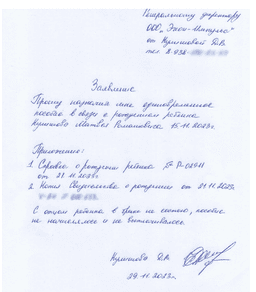 Генеральному директору
ООО "Экон-Импульс"
от Куриловой Д.В.
тел 8-938-
Заявление
Прошу назначить мне единовременное
пособие в связи с рождением ребенка
Матвея Романовича 15.11.2023г.
Приложение:
1. Справка о рождении ребенка
от 21.11.2023г.
2. Копия Свидетельства о рождении от 21.11.2023г.
С отцом ребенка в браке не состою, пособие
не начислялось и не выплачивалось.
Д.В.
29.11.2023г.